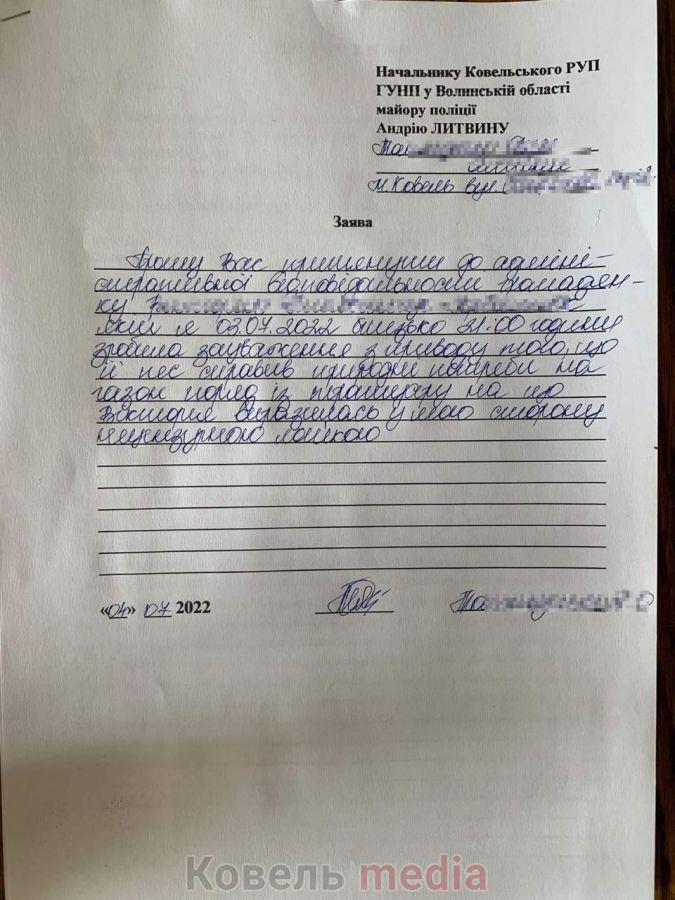 Начальнику Ковельського РУП
ГУНП у Волинській області
майору поліції
Андрію ЛИТВИНУ
м. Ковель вул.
Заява
Прошу Вас притягнути до адміні-
стративної відповідальності громадян-
ку
якій я 03.07.2022 близько 21:00 години
зробила зауваження з приводу того, що
її пес справив природні потреби на
газон поряд із на що
Вікторія виразилась у мою сторону
нецензурною лайкою
«04» 07 2022
Ковель media